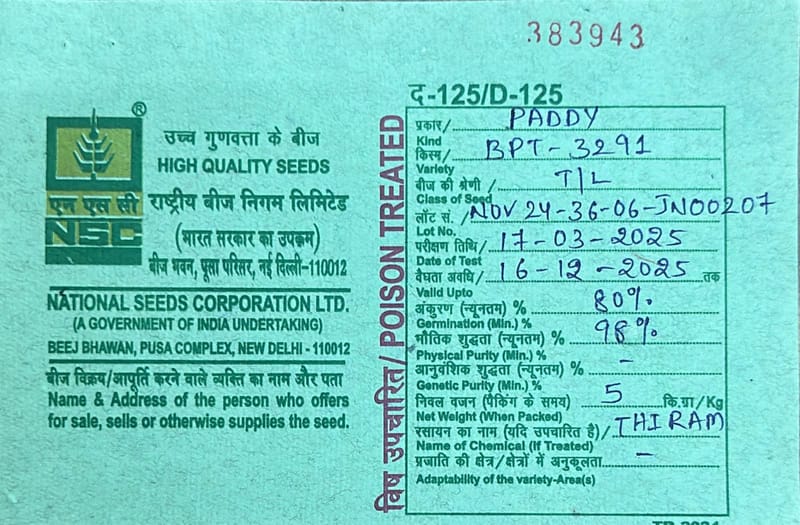 383943
®
एन एस सी
NSC
उच्च गुणवत्ता के बीज
HIGH QUALITY SEEDS
राष्ट्रीय बीज निगम लिमिटेड
(भारत सरकार का उपक्रम)
बीज भवन, पूसा परिसर, नई दिल्ली-110012
NATIONAL SEEDS CORPORATION LTD.
(A GOVERNMENT OF INDIA UNDERTAKING)
BEEJ BHAWAN, PUSA COMPLEX, NEW DELHI - 110012
बीज विक्रय/आपूर्ति करने वाले व्यक्ति का नाम और पता
Name & Address of the person who offers
for sale, sells or otherwise supplies the seed.
विष उपचारित/ POISON TREATED
द-125/D-125
प्रकार/ PADDY
Kind
किस्म/ BPT-3291
Variety
बीज की श्रेणी / T/L
Class of Seed
लॉट सं. /NOV 24-36-06-JN00207
Lot No.
परीक्षण तिथि/ 17-03-2025
Date of Test
वैधता अवधि/ 16-12-2025 तक
Valid Upto
अंकुरण (न्यूनतम) % 80%
Germination (Min.) %
भौतिक शुद्धता (न्यूनतम) % 98%
Physical Purity (Min.) %
आनुवंशिक शुद्धता (न्यूनतम) % -
Genetic Purity (Min.) %
निवल वजन (पैकिंग के समय) 5 कि.ग्रा/Kg
Net Weight (When Packed)
रसायन का नाम (यदि उपचारित है)/ THIRAM
Name of Chemical (If Treated)
प्रजाति की क्षेत्र/क्षेत्रों में अनुकूलता -
Adaptability of the variety-Area(s)